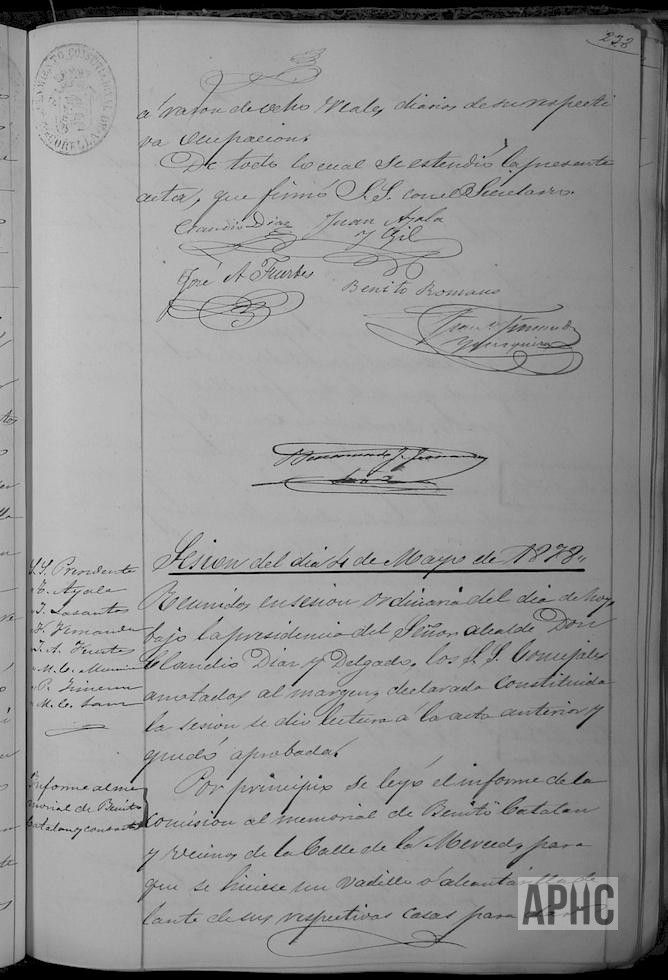 238
AYUNTAMIENTO CONSTITUCIONAL DE
CORELLA
á razon de ocho reales diarios de su respecti
va ocupacion.
De todo lo cual se estendió la presente
acta, que firmó S.S. con el Secretario.
Claudio Diaz Juan Ayala
y Gil
José A Fuertes
Benito Romano
Sesion del dia 4 de Mayo de 1878.,
S.S. Presidente
Ayala
Lasanta
Fernandez
J. A. Fuertes
M. C.
P. Jimenez
M. C.
Reunidos en sesion ordinaria del dia de hoy,
bajo la presidencia del Señor alcalde Don
Claudio Diaz y Delgado, los S.S. Concejales
anotados al margen, declarada constituida
la sesion se dio lectura á la acta anterior y
quedó aprobada.
Informe al me
morial de Benito
Catalan y consortes
Por principio se leyó el informe de la
Comision al memorial de Benito Catalan
y vecinos de la Calle de la Merced, para
que se hiciese un vadillo ó alcantarilla de
lante de sus respectivas casas para
APHC